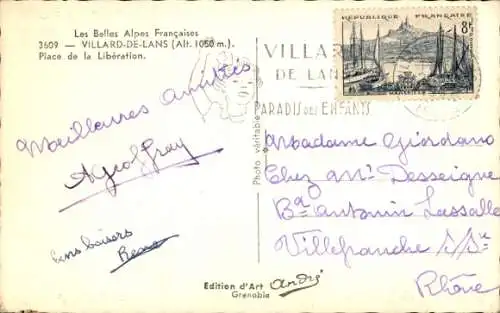 Les Belles Alpes Françaises
3609 — VILLARD-DE-LANS (Alt. 1050 m.).
Place de la Libération.
Meilleures Amitiés
AGeoffray
bons baisers
Photo véritable
Edition d'Art André
Grenoble
RÉPUBLIQUE FRANÇAISE
8f
VILLARD
DE LANS
PARADIS DES ENFANTS
Madame Giordano
Chez Mr Desseigne
Bd Antonin Lassalle
Villefranche s/Se
Rhône